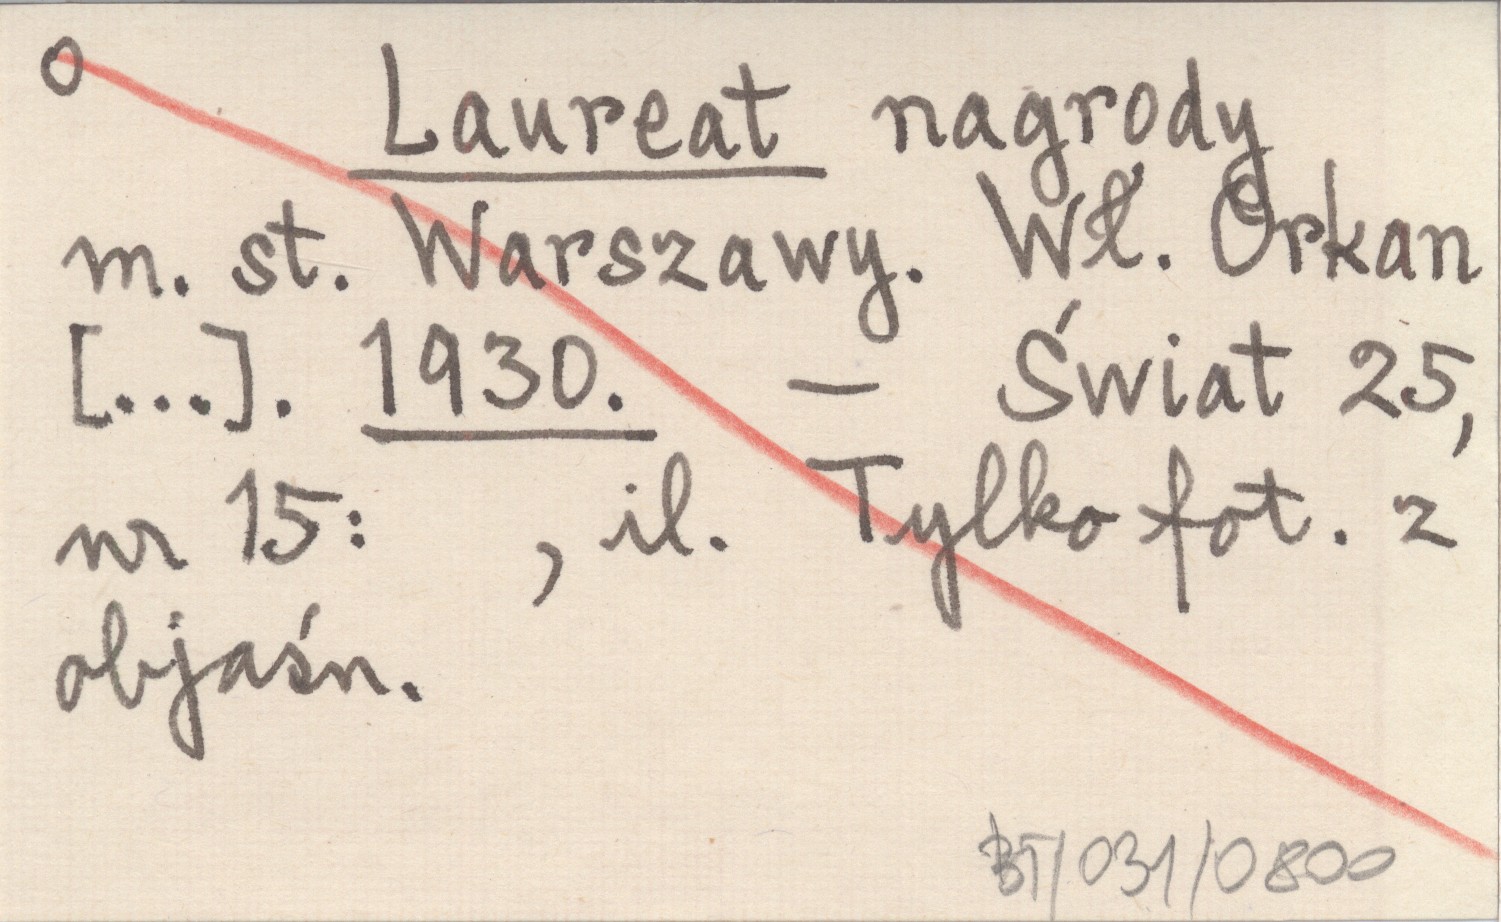 O
Laureat nagrody
m. st. Warszawy. Wł. Orkan
[...]. 1930. — Świat 25,
nr 15: , il. Tylko fot. z
objaśn.
BT/031/0800